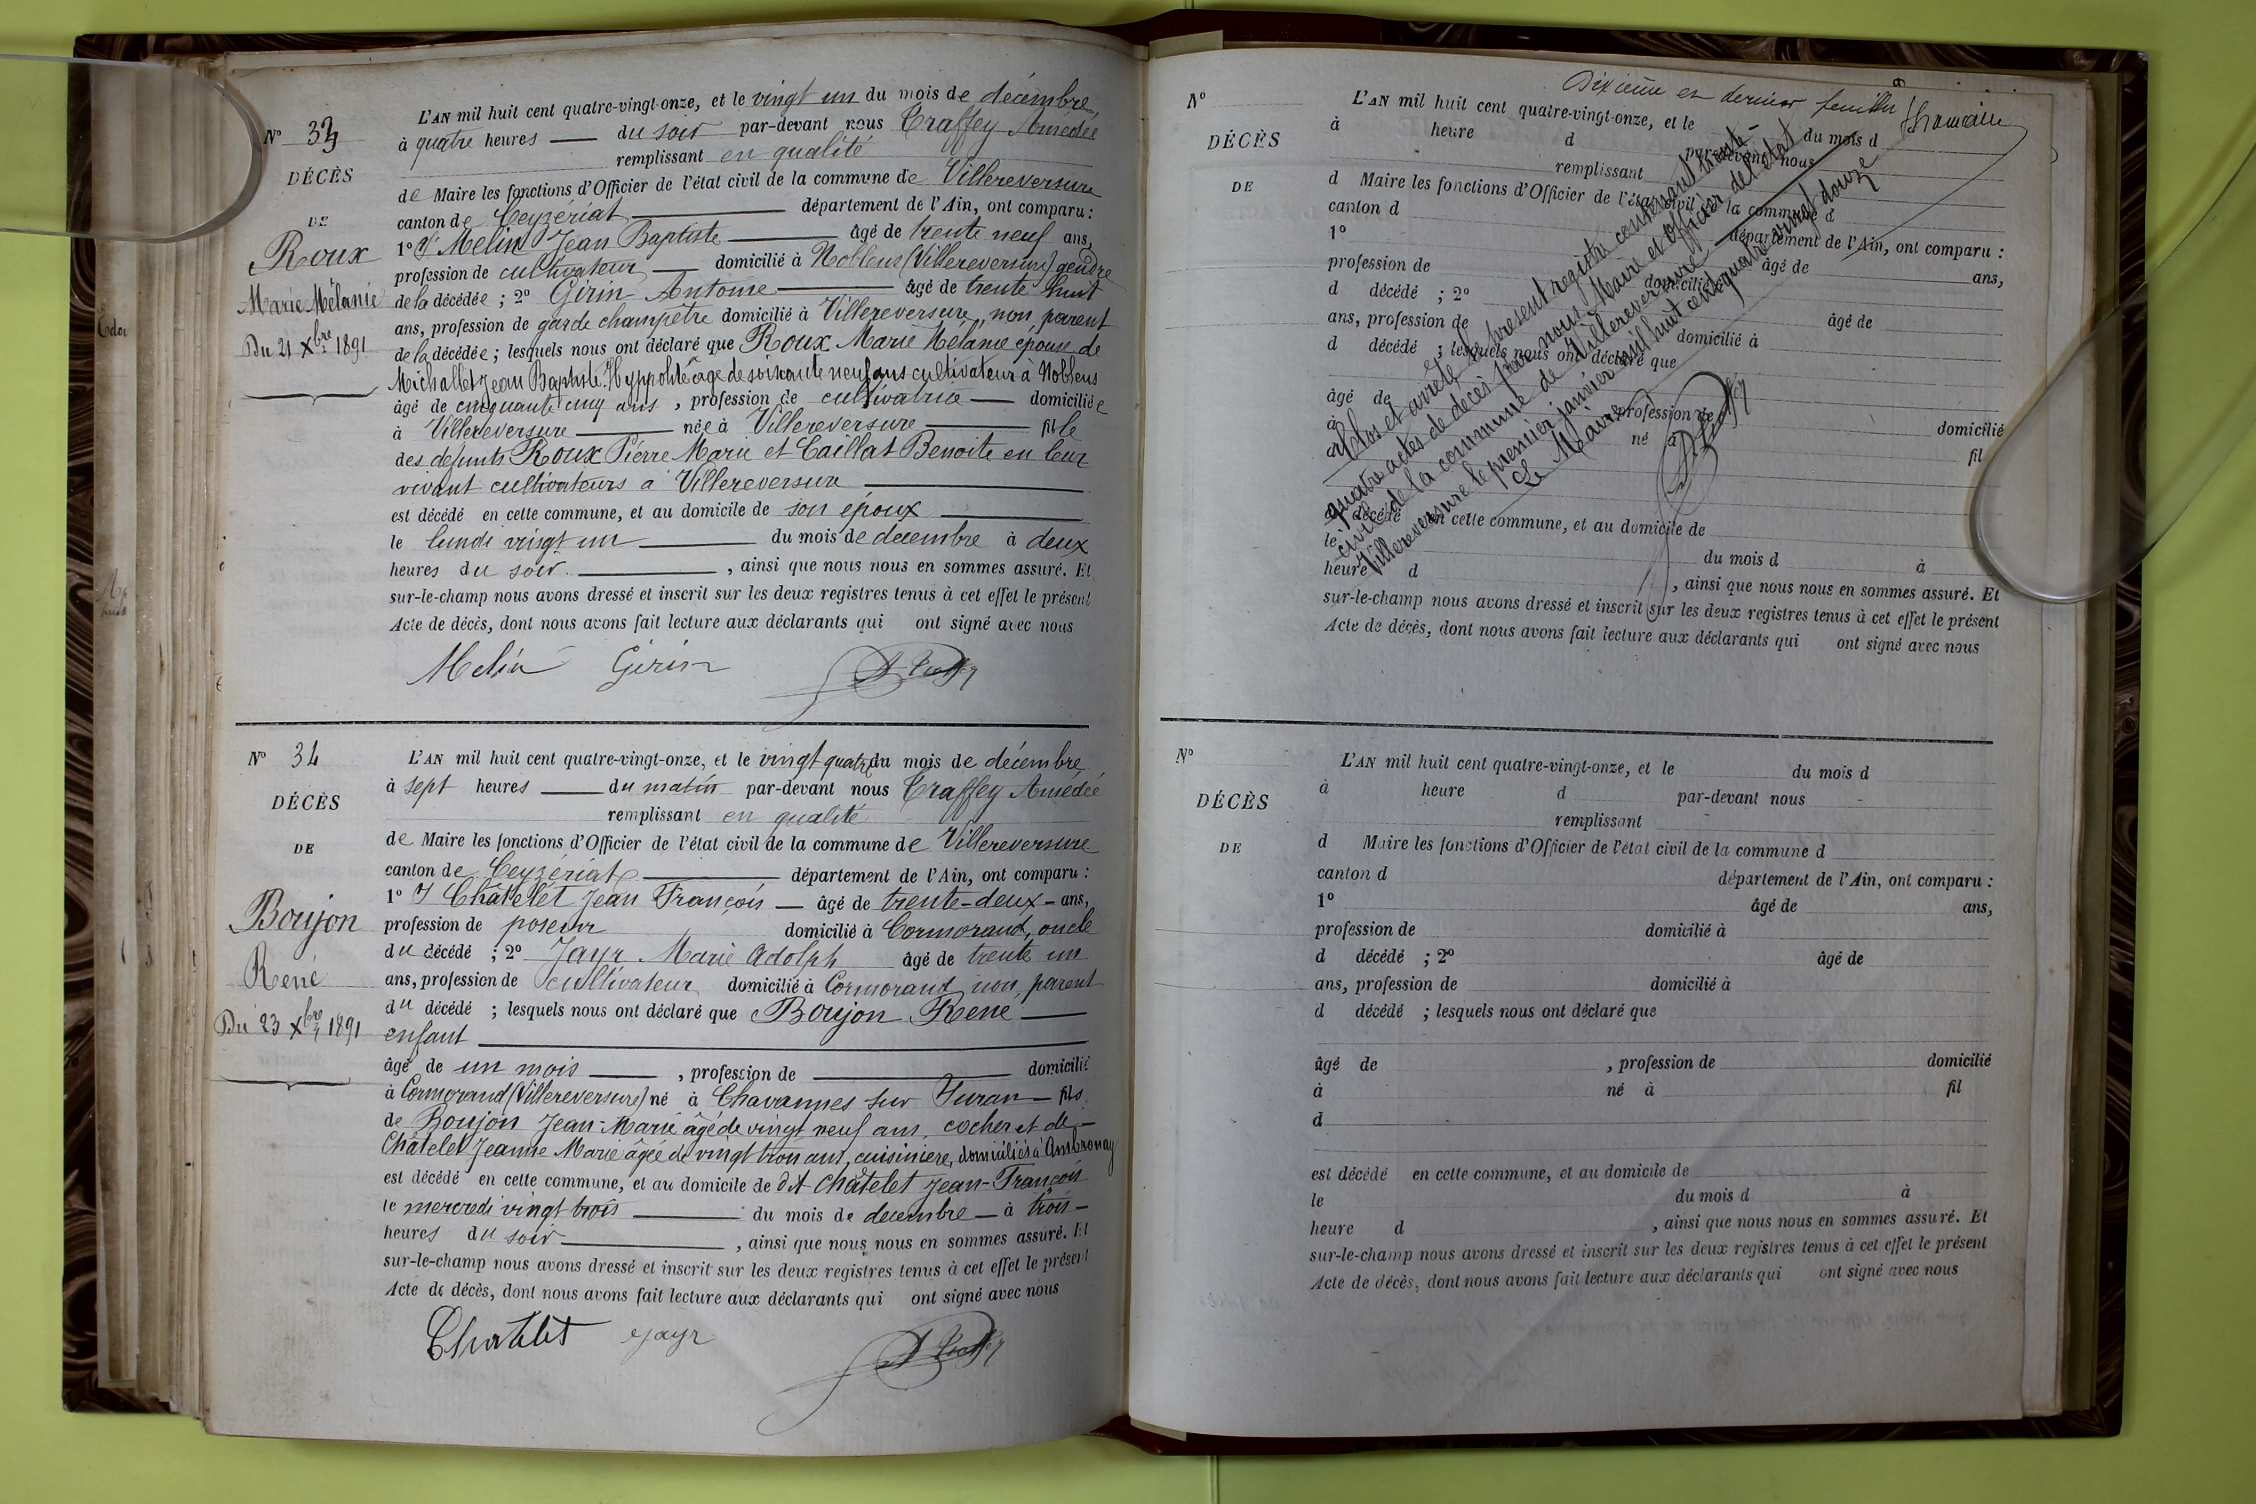 N° 33
DÉCÈS
DE
Roux
Marie Mélanie
Du 21 Xbre 1891
L'AN mil huit cent quatre-vingt-onze, et le vingt un du mois de décembre
à quatre heures du soir par-devant nous Traffey Amédée
remplissant en qualité
de Maire les fonctions d'Officier de l'état civil de la commune de Villereversure
canton de Ceyzériat département de l'Ain, ont comparu :
1° Melin Jean Baptiste âgé de trente neuf ans,
profession de cultivateur domicilié à Noblens (Villereversure) gendre
de la décédée ; 2° Girin Antoine âgé de trente huit
ans, profession de garde champêtre domicilié à Villereversure, non parent
de la décédée ; lesquels nous ont déclaré que Roux Marie Mélanie épouse de
Michallet Jean Baptiste Hyppolite âgé de soixante neuf ans cultivateur à Noblens
âgé de cinquante cinq ans , profession de cultivatrice domiciliée
à Villereversure née à Villereversure fille
des défunts Roux Pierre Marie et Caillat Benoite en leur
vivant cultivateurs à Villereversure
est décédé en cette commune, et au domicile de son époux
le lundi vingt un du mois de decembre à deux
heures du soir , ainsi que nous nous en sommes assuré. Et
sur-le-champ nous avons dressé et inscrit sur les deux registres tenus à cet effet le présent
Acte de décès, dont nous avons fait lecture aux déclarants qui ont signé avec nous
Melin Girin
N° 34
DÉCÈS
DE
Boujon
René
Du 23 Xbre 1891
L'AN mil huit cent quatre-vingt-onze, et le vingt quatre du mois de décembre
à sept heures du matin par-devant nous Traffey Amédée
remplissant en qualité
de Maire les fonctions d'Officier de l'état civil de la commune de Villereversure
canton de Ceyzériat département de l'Ain, ont comparu :
1° Châtelet Jean François âgé de trente-deux ans,
profession de poseur domicilié à Cormorand, oncle
du décédé ; 2° Jayr Marie Adolph âgé de trente un
ans, profession de cultivateur domicilié à Cormorand, non parent
du décédé ; lesquels nous ont déclaré que Boujon René
enfant
âgé de un mois , profession de domicilié
à Cormorand (Villereversure) né à Chavannes sur Suran fils
de Boujon Jean-Marie âgé de vingt neuf ans, cocher et de
Châtelet Jeanne Marie âgée de vingt trois ans, cuisiniere, domiciliés à Ambronay
est décédé en cette commune, et au domicile de dit Châtelet Jean-François
le mercredi vingt trois du mois de decembre à trois
heures du soir , ainsi que nous nous en sommes assuré. Et
sur-le-champ nous avons dressé et inscrit sur les deux registres tenus à cet effet le présent
Acte de décès, dont nous avons fait lecture aux déclarants qui ont signé avec nous
Chatelet Jayr
Dixième et dernier feuillet
N°
DÉCÈS
DE
L'AN mil huit cent quatre-vingt-onze, et le du mois d
à heure d par-devant nous
remplissant
d Maire les fonctions d'Officier de l'état civil de la commune d
canton d département de l'Ain, ont comparu :
1° âgé de ans,
profession de domicilié à
d décédé ; 2° âgé de
ans, profession de domicilié à
d décédé ; lesquels nous ont déclaré que
âgé de , profession de domicilié
à né à fil
d
est décédé en cette commune, et au domicile de
le du mois d à
heure d , ainsi que nous nous en sommes assuré. Et
sur-le-champ nous avons dressé et inscrit sur les deux registres tenus à cet effet le présent
Acte de décès, dont nous avons fait lecture aux déclarants qui ont signé avec nous
Clos et arrêté le présent registre contenant trente
quatre actes de décès par nous Maire et officier de l'état
civil de la commune de Villereversure
Villereversure le premier janvier mil huit cent quatre vingt douze
Le Maire
N°
DÉCÈS
DE
L'AN mil huit cent quatre-vingt-onze, et le du mois d
à heure d par-devant nous
remplissant
d Maire les fonctions d'Officier de l'état civil de la commune d
canton d département de l'Ain, ont comparu :
1° âgé de ans,
profession de domicilié à
d décédé ; 2° âgé de
ans, profession de domicilié à
d décédé ; lesquels nous ont déclaré que
âgé de , profession de domicilié
à né à fil
d
est décédé en cette commune, et au domicile de
le du mois d à
heure d , ainsi que nous nous en sommes assuré. Et
sur-le-champ nous avons dressé et inscrit sur les deux registres tenus à cet effet le présent
Acte de décès, dont nous avons fait lecture aux déclarants qui ont signé avec nous